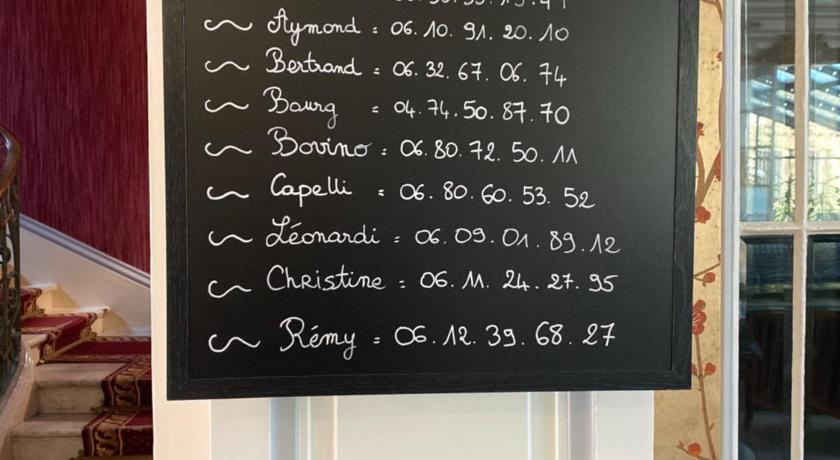 ~ Aymond = 06. 10. 91. 20. 10
~ Bertrand = 06. 32. 67. 06. 74
~ Bourg = 04. 74. 50. 87. 70
~ Bovino = 06. 80. 72. 50. 11
~ Capelli = 06. 80. 60. 53. 52
~ Léonardi = 06. 09. 01. 89. 12
~ Christine = 06. 11. 24. 27. 95
~ Rémy = 06. 12. 39. 68. 27